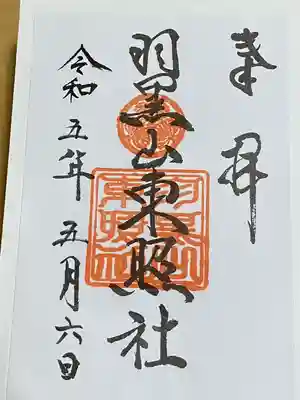 奉拝
羽黒山東照社
令和五年五月六日